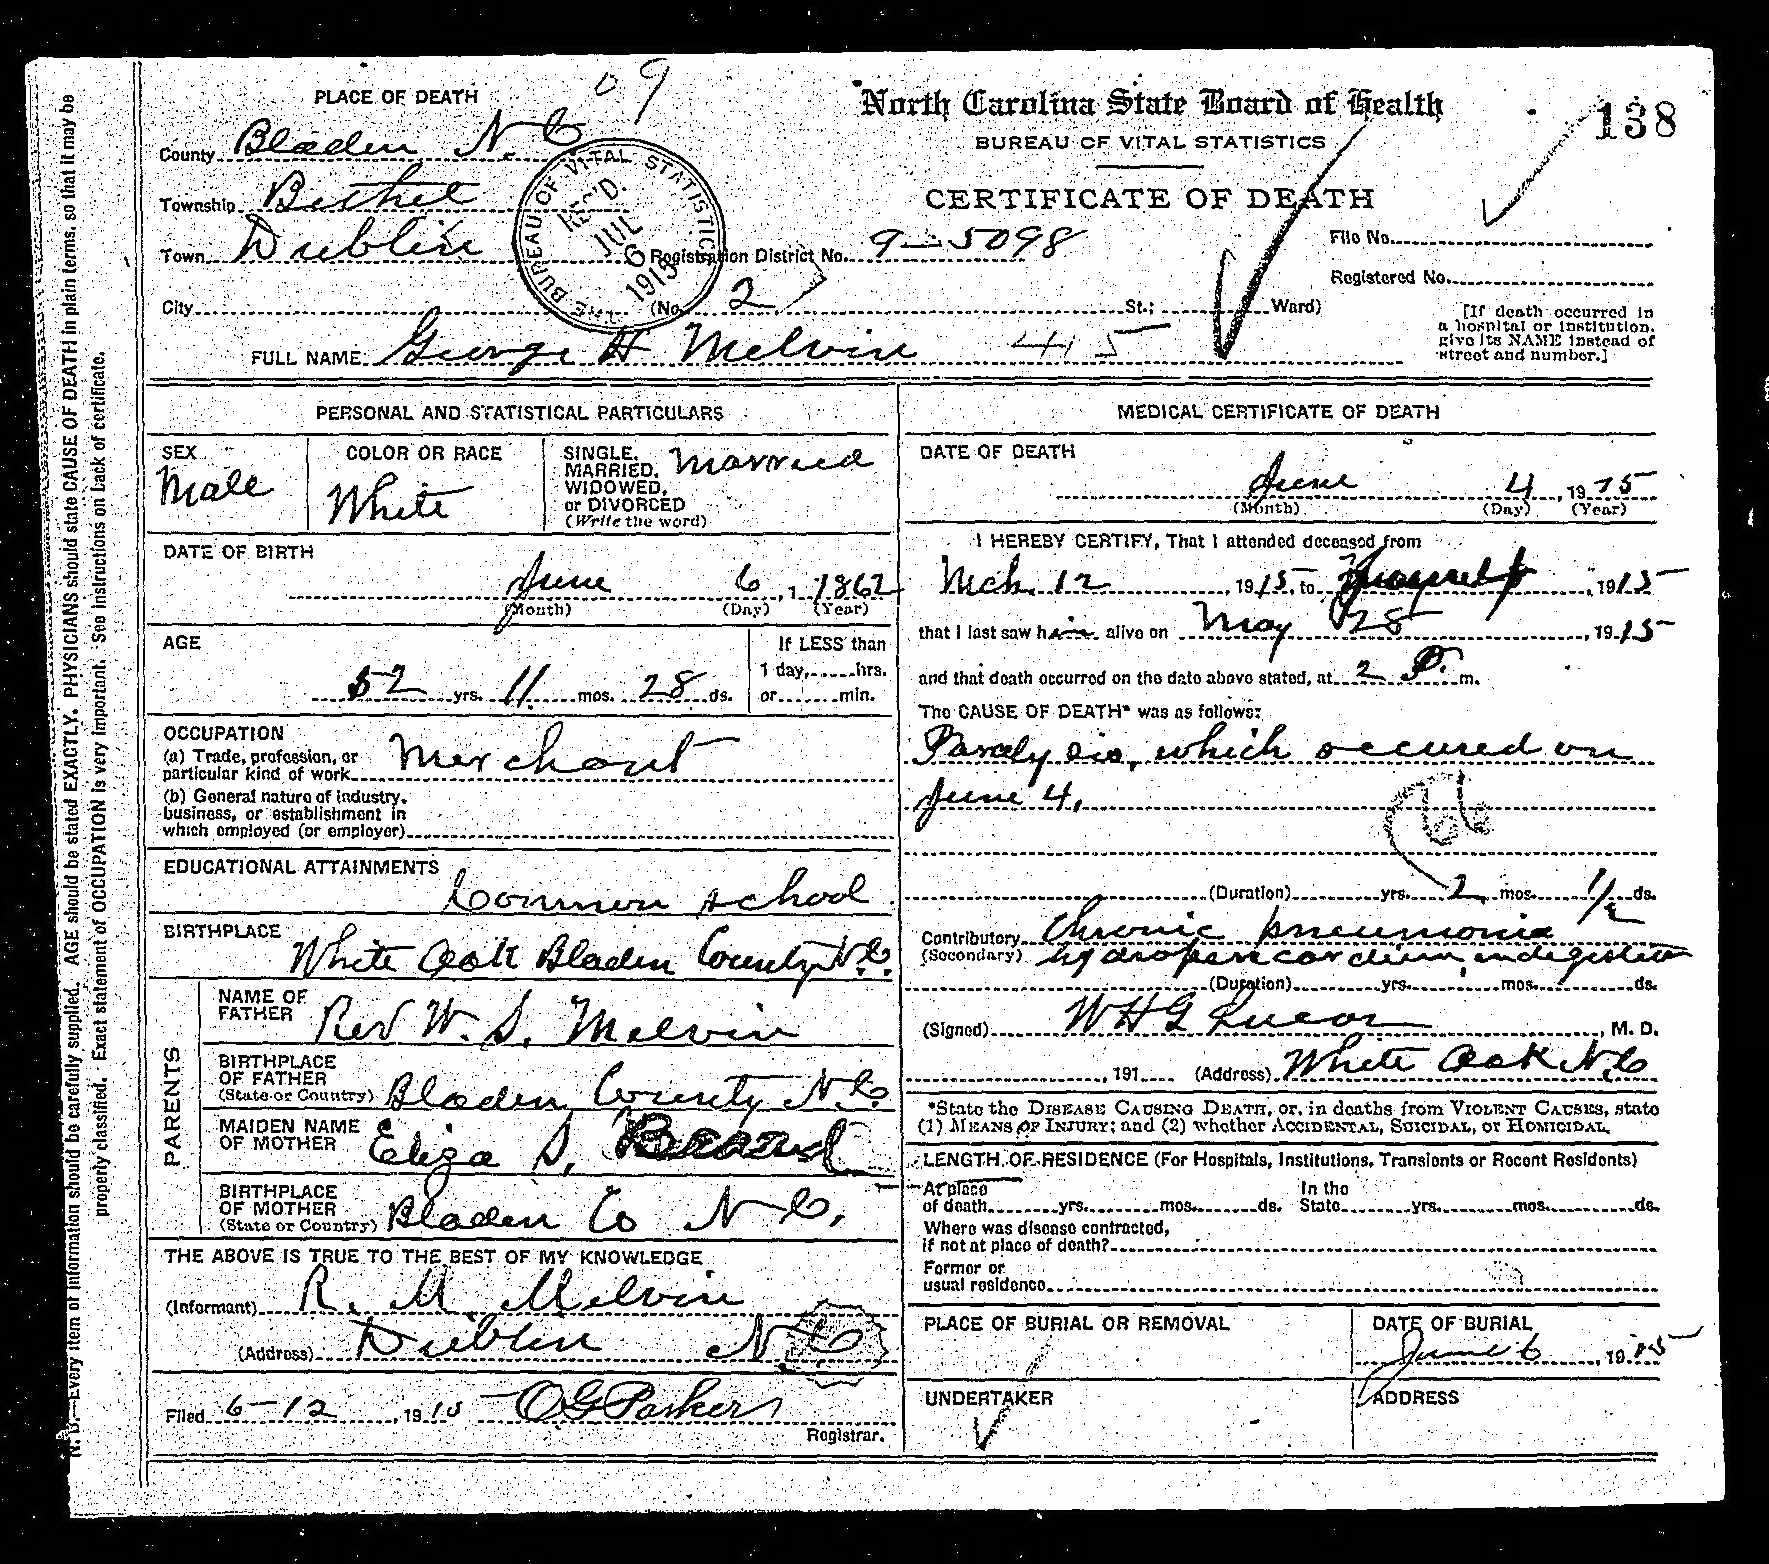 09
PLACE OF DEATH
County Bladen N.C
Township Bethel
Town Dublin
City (No. 2 St.; Ward)
FULL NAME George H Melvin 45
THE BUREAU OF VITAL STATISTICS
REC'D.
JUL
6
1915
North Carolina State Board of Health
BUREAU OF VITAL STATISTICS
CERTIFICATE OF DEATH
138
Registration District No. 9-5098
File No.
Registered No.
[If death occurred in
a hospital or institution,
give its NAME instead of
street and number.]
PERSONAL AND STATISTICAL PARTICULARS
SEX
Male
COLOR OR RACE
White
SINGLE,
MARRIED,
WIDOWED,
or DIVORCED
(Write the word)
Married
DATE OF BIRTH
June 6, 1 1862
(Month) (Day) (Year)
AGE
52 yrs. 11 mos. 28 ds.
If LESS than
1 day, hrs.
or min.
OCCUPATION
(a) Trade, profession, or
particular kind of work Merchant
(b) General nature of industry,
business, or establishment in
which employed (or employer)
EDUCATIONAL ATTAINMENTS
Common school
BIRTHPLACE
White Oak Bladen County N.C.
PARENTS
NAME OF
FATHER Rev W. S. Melvin
BIRTHPLACE
OF FATHER
(State or Country) Bladen County N.C.
MAIDEN NAME
OF MOTHER Eliza S. Beard
BIRTHPLACE
OF MOTHER
(State or Country) Bladen Co N.C.
THE ABOVE IS TRUE TO THE BEST OF MY KNOWLEDGE
(Informant) R. M. Melvin
(Address) Dublin N.C
Filed 6-12, 1915 O G Parker
Registrar.
MEDICAL CERTIFICATE OF DEATH
DATE OF DEATH
June 4, 1915
(Month) (Day) (Year)
I HEREBY CERTIFY, That I attended deceased from
Mch. 12, 1915, to , 1915
that I last saw him alive on May 28, 1915
and that death occurred on the date above stated, at 2 P. m.
The CAUSE OF DEATH* was as follows:
Paralysis, which occured on
June 4.
66
(Duration) yrs. 2 mos. 1/2 ds.
Contributory Chronic pneumonia
(Secondary) hydropericardium, indigestion
(Duration) yrs. mos. ds.
(Signed) W H G Lucas, M. D.
, 191 (Address) White Oak N.C
*State the DISEASE CAUSING DEATH, or, in deaths from VIOLENT CAUSES, state
(1) MEANS OF INJURY; and (2) whether ACCIDENTAL, SUICIDAL, or HOMICIDAL.
LENGTH OF RESIDENCE (For Hospitals, Institutions, Transients or Recent Residents)
At place
of death yrs. mos. ds.
In the
State yrs. mos. ds.
Where was disease contracted,
if not at place of death?
Former or
usual residence
PLACE OF BURIAL OR REMOVAL
DATE OF BURIAL
June 6, 1915
UNDERTAKER
ADDRESS
N. B.—Every item of information should be carefully supplied. AGE should be stated EXACTLY. PHYSICIANS should state CAUSE OF DEATH in plain terms, so that it may be
properly classified. Exact statement of OCCUPATION is very important. See instructions on back of certificate.